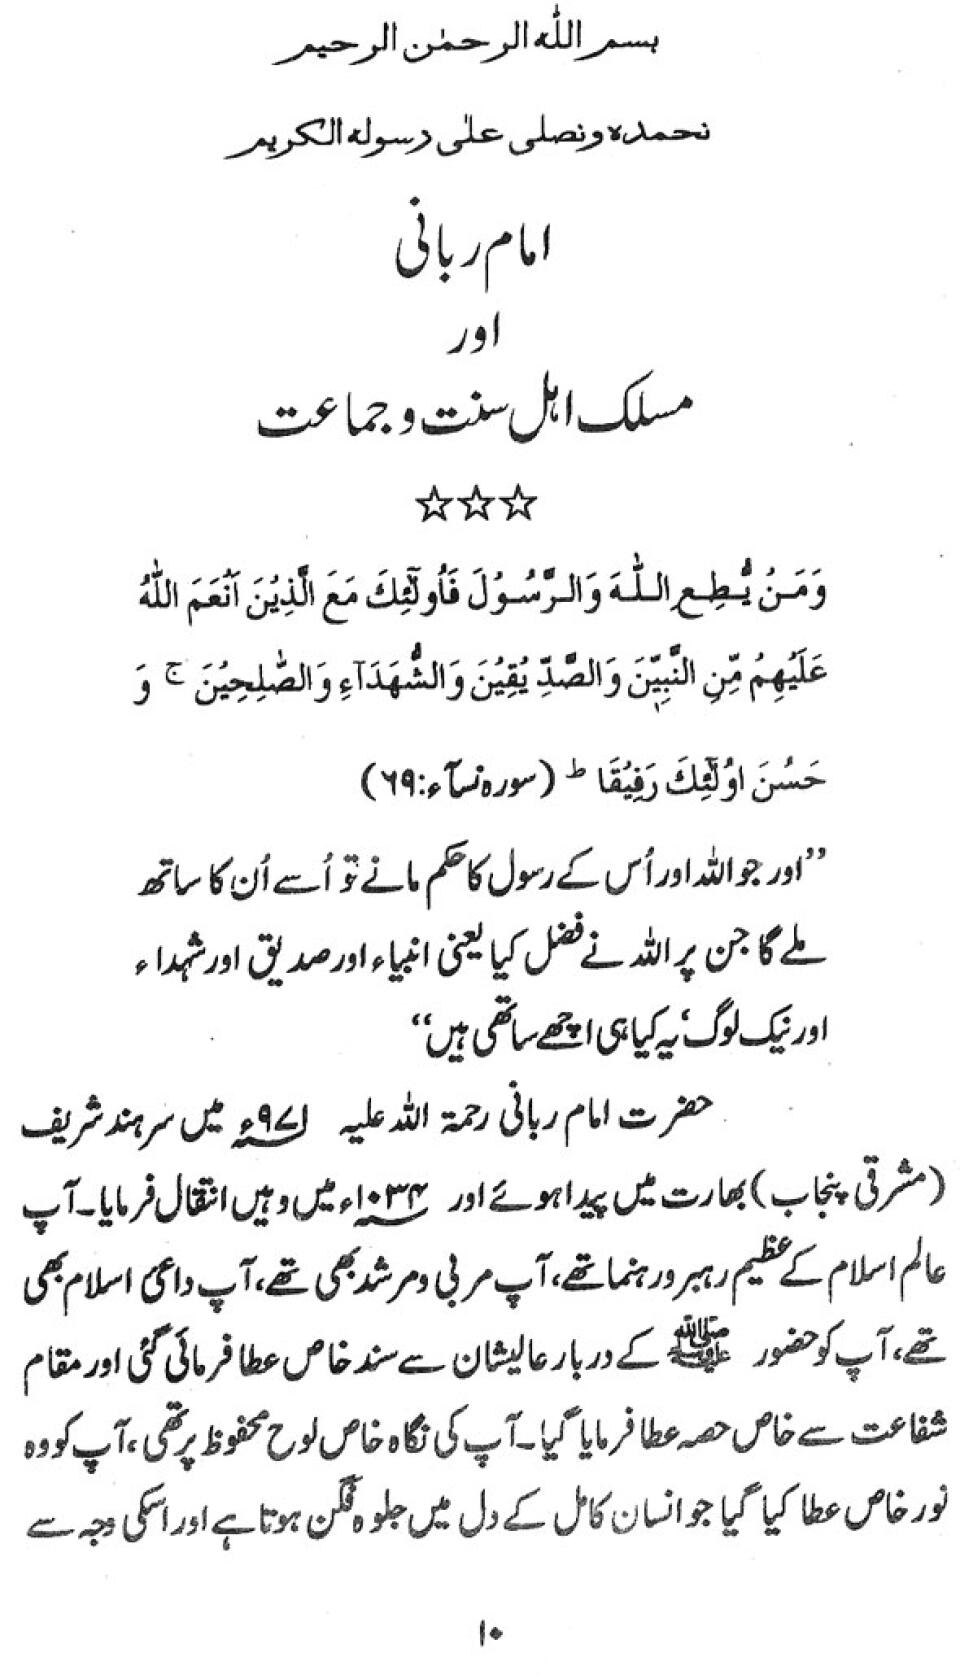 بسم اللہ الرحمٰن الرحیم
نحمدہ ونصلی علیٰ رسولہ الکریم
امام ربانی
اور
مسلک اہل سنت و جماعت
☆☆☆
وَمَنْ یُّطِعِ اللّٰہَ وَالرَّسُوْلَ فَاُولٰٓئِکَ مَعَ الَّذِیْنَ اَنْعَمَ اللّٰہُ
عَلَیْہِمْ مِّنِ النَّبِیّٖنَ وَالصَّدِّیْقِیْنَ وَالشُّہَدَآءِ وَالصّٰلِحِیْنَ ج وَ
حَسُنَ اوُلٰٓئِکَ رَفِیْقَا ط (سورہ نسآء:۶۹)
”اور جو اللہ اور اُس کے رسول کا حکم مانے تو اُسے اُن کا ساتھ
ملے گا جن پر اللہ نے فضل کیا یعنی انبیاء اور صدیق اور شہداء
اور نیک لوگ‘ یہ کیا ہی اچھے ساتھی ہیں“
حضرت امام ربانی رحمۃ اللہ علیہ ۹۷۱ء میں سرہند شریف
(مشرقی پنجاب) بھارت میں پیدا ہوئے اور ۱۰۳۴ء میں وہیں انتقال فرمایا۔ آپ
عالم اسلام کے عظیم رہبر و رہنما تھے، آپ مربی و مرشد بھی تھے، آپ داعیٔ اسلام بھی
تھے، آپ کو حضور ﷺ کے دربار عالیشان سے سند خاص عطا فرمائی گئی اور مقام
شفاعت سے خاص حصہ عطا فرمایا گیا۔ آپ کی نگاہ خاص لوح محفوظ پر تھی، آپ کو وہ
نور خاص عطا کیا گیا جو انسان کامل کے دل میں جلوہ فگن ہوتا ہے اور اسکی وجہ سے
۱۰